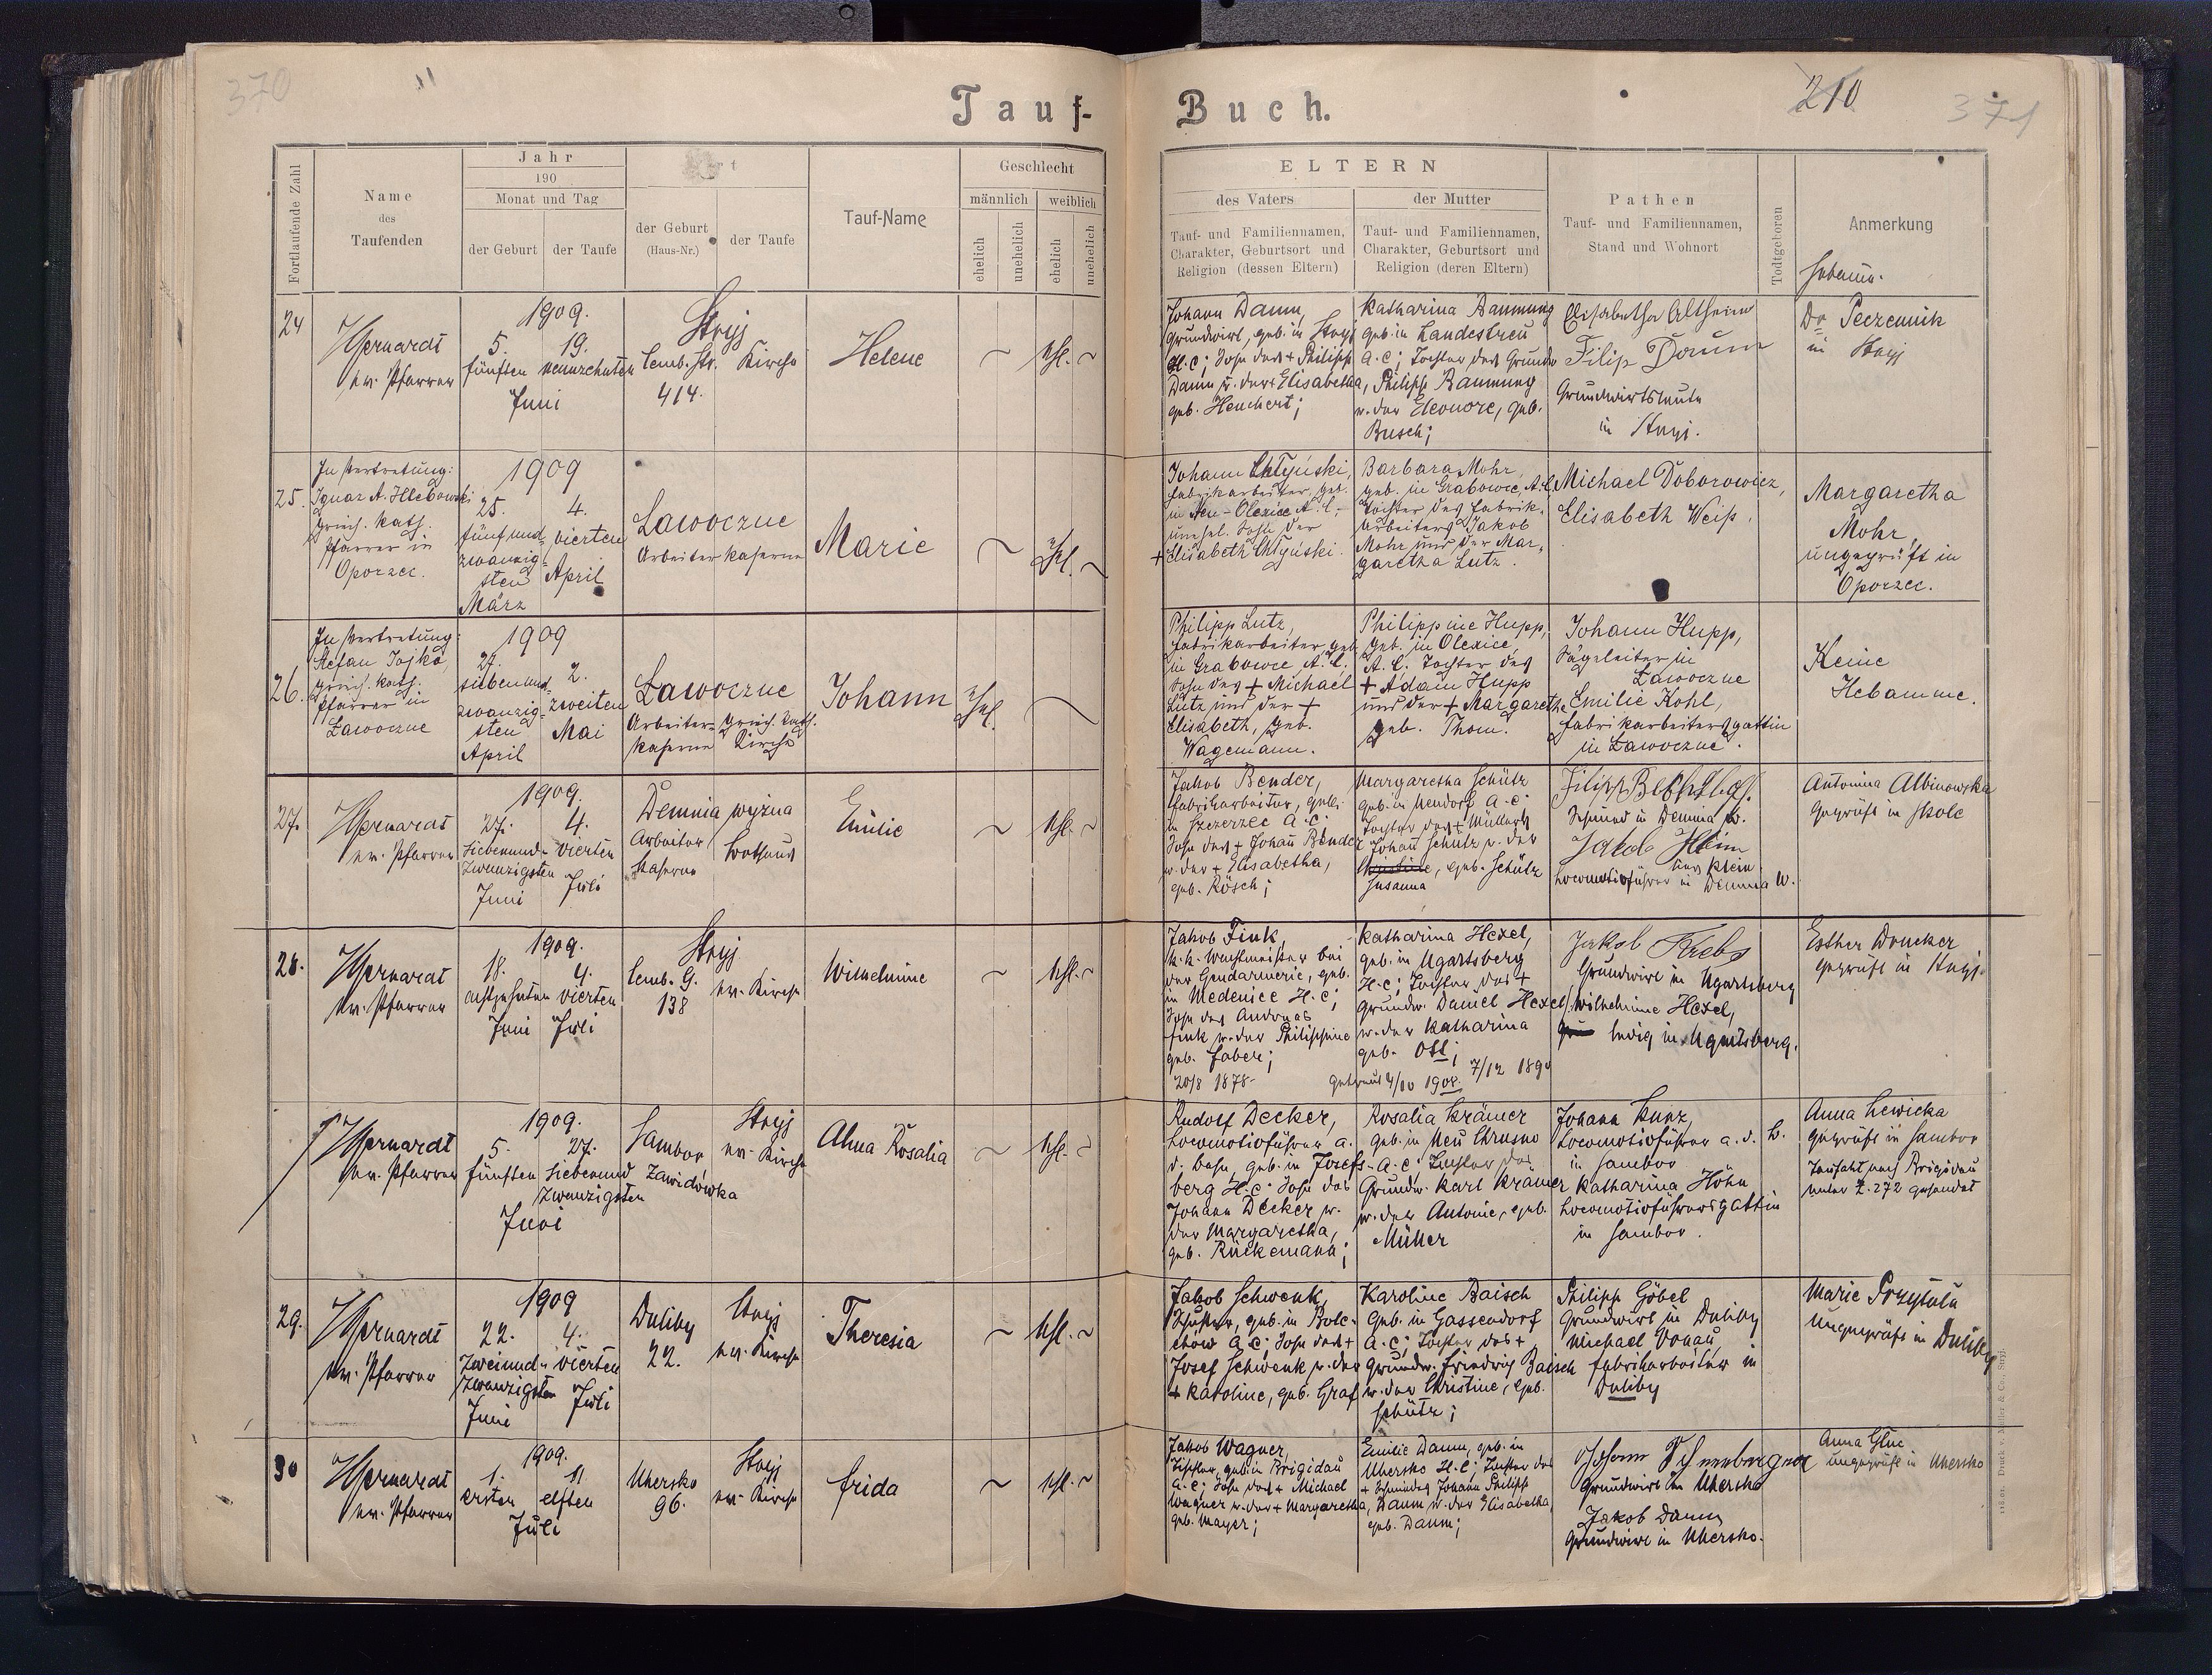 370
Tauf-
Buch.
210
371
Fortlaufende Zahl
Name
des
Taufenden
Jahr
190
Monat und Tag
der Geburt
der Taufe
der Geburt
(Haus-Nr.)
der Taufe
Tauf-Name
Geschlecht
männlich
weiblich
ehelich
unehelich
ehelich
unehelich
ELTERN
des Vaters
Tauf- und Familiennamen,
Charakter, Geburtsort und
Religion (dessen Eltern)
der Mutter
Tauf- und Familiennamen,
Charakter, Geburtsort und
Religion (deren Eltern)
Pathen
Tauf- und Familiennamen,
Stand und Wohnort
Todtgeboren
Anmerkung
Hebamme.
24
ev. Pfarrer
1909.
5. 19.
fünften neunzehnten
Juni
Stryj
Lemb. Str. Kirche
414.
Helene
ehl.
Johann Daum,
Grundwirt, geb. in Stryj
H.C; Sohn des + Philipp
Daum u. der Elisabetha,
geb. Heuchert;
Katharina
geb. in Landestreu
A.C; Tochter des Grundw
Philipp
u. der Eleonore, geb.
Busch;
Elisabetha Altheim
Filip Daum
Grundwirtsleute
in Stryj.
Dr Peczenik
in Stryj
25.
In Vertretung:
Ignaz A. Hlebowski
griech. kath.
Pfarrer in
Oporzec.
1909
25. 4.
fünfund- vierten
zwanzig-
sten April
März
Lawoczne
Arbeiterkaserne
Marie
Ehl.
Johann
Fabrikarbeiter, geb.
in Neu-Olexice A.C.,
unehel. Sohn der
+ Elisabeth
Barbara Mohr,
geb. in Grabowce, A.C.
Tochter des Fabrik-
arbeiters Jakob
Mohr und der Mar-
garetha Lutz.
Michael Doborowicz,
Elisabeth Weiß.
Margaretha
Mohr,
ungeprüft in
Oporzec.
26.
In Vertretung:
Stefan Jojko,
griech. kath.
Pfarrer in
Lawoczne
1909
27. 2.
siebenund- zweiten
zwanzig-
sten Mai
April
Lawoczne
Arbeiter- griech. kath.
kaserne Kirche
Johann
Ehel.
Philipp Lutz,
Fabrikarbeiter geb.
in Grabowce, A.C.
Sohn des + Michael
Lutz und der +
Elisabeth, geb.
Wagemann.
Philippine Hupp,
geb. in Olexice,
A.C. Tochter des
+ Adam Hupp
und der + Margarethe
geb. Thom.
Johann Hupp,
Sägeleiter in
Lawoczne
Emilie Kohl,
Fabrikarbeitersgattin
in Lawoczne.
Keine
Hebamme.
27.
ev. Pfarrer
1909.
27. 4.
Siebenund- vierten
Zwanzigsten
Juni Juli
Demnia wyżna
Arbeiter Bethaus
Kaserne
Emilie
ehl.
Jakob Bender,
Fabrikarbeiter, geb.
in Szczerzec A.C;
Sohn des + Johann Bender
u. der + Elisabetha,
geb. Rösch;
Margaretha Schütz
geb. in Neudorf A.C;
Tochter des + Müllers
Johann Schütz u. der
Susanna, geb. Schütz
Schmied in Demnia w.
Jakob Klein
Locomotivführer in Demnia W.
Antonina Albinowska
Geprüft in Skole
28.
ev. Pfarrer
1909.
18. 4.
achtzehnten vierten
Juni Juli
Stryj
Lemb. G. ev. Kirche
138
Wilhelmine
ehl.
Jakob Fink,
k.k. Wachtmeister bei
der Gendarmerie, geb.
in Medenice H.C;
Sohn des Andreas
Fink u. der Philippine
geb. Faber;
20/8 1878-
Katharina Hexel,
geb. in Ugartsberg
H.C; Tochter des +
Grundw. Daniel Hexel
u. der Katharina
geb. Ott;
getraut 4/10 1908. 7/12 1890
Jakob Krebs
Grundwirt in Ugartsberg
Wilhelmine Hexel,
ledig in Ugartsberg.
Esther Drucker
geprüft in Stryj.
ev. Pfarrer
1909.
5. 27.
fünften Siebenund
Zwanzigsten
Juni
Sambor Stryj
ev. Kirche
Zawidówka
Alma Rosalia
ehl.
Rudolf Decker,
Locomotivführer a.
d. Bahn, geb. in Josefs-
berg H.C; Sohn des
Johann Decker u.
der Margaretha,
geb. Rückemann;
Rosalia Krämer
geb. in Neu Chrusno
A.C; Tochter des
Grundw. Karl Krämer
u. der Antonie, geb.
Müller
Johann Kunz,
Locomotivführer a. d. B.
in Sambor
Katharina Höhn
Locomotivführersgattin
in Sambor.
Anna Lewicka
geprüft in Sambor
Taufakt nach Brigidau
unter Z. 272 gesendet
29.
ev. Pfarrer
1909
22. 4.
Zweiund- vierten
Zwanzigsten
Juni Juli
Duliby Stryj
22. ev. Kirche
Theresia
ehl.
Jakob Schwenk,
Schuster, geb. in Bole-
chów A.C; Sohn des +
Josef Schwenk u. der
+ Karoline, geb. Graf
Karoline Baisch
geb. in Gassendorf
A.C; Tochter des +
Grundw. Friedrich Baisch
u. der Christine, geb.
Schütz;
Philipp Göbel
Grundwirt in Duliby
Michael Vonau
Fabrikarbeiter in
Duliby
Marie Przytuła
Ungeprüft in Duliby
30
ev. Pfarrer
1909.
1. 11.
ersten elften
Juli
Uhersko Stryj
96. ev. Kirche
Frida
ehl.
Jakob Wagner,
Tischler, geb. in Brigidau
A.C; Sohn des + Michael
Wagner u. der + Margaretha,
geb. Mayer;
Emilie Daum, geb. in
Uhersko H.C; Tochter des
+ Schmiedes Johann Philipp
Daum u. der Elisabetha,
geb. Daum;
Grundwirt in Uhersko
Jakob Daum
Grundwirt in Uhersko.
Anna Gluc
ungeprüft in Uhersko